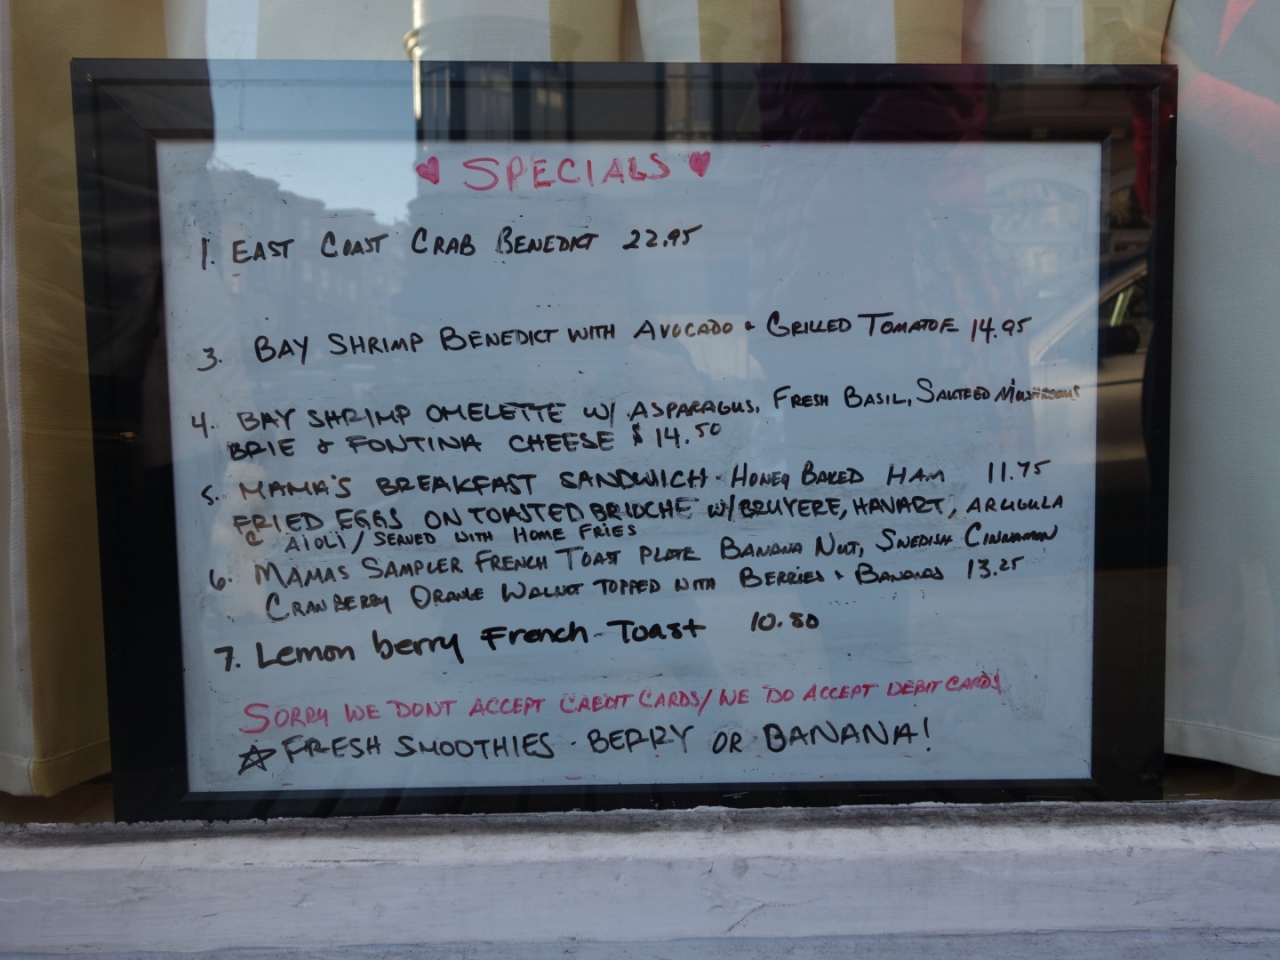 ♥ SPECIALS ♥
1. EAST COAST CRAB BENEDICT 22.95
3. BAY SHRIMP BENEDICT WITH AVOCADO & GRILLED TOMATOE 14.95
4. BAY SHRIMP OMELETTE W/ ASPARAGUS, FRESH BASIL, SAUTEED MUSHROOMS
BRIE & FONTINA CHEESE $14.50
5. MAMA'S BREAKFAST SANDWICH - HONEY BAKED HAM 11.75
FRIED EGGS ON TOASTED BRIOCHE W/ BRUYERE, HAVART, ARUGULA
C AIOLI / SERVED WITH HOME FRIES
6. MAMAS SAMPLER FRENCH TOAST PLATE BANANA NUT, SWEDISH CINNAMON
CRANBERRY ORANGE WALNUT TOPPED WITH BERRIES & BANANAS 13.25
7. Lemon berry French Toast 10.80
SORRY WE DONT ACCEPT CREDIT CARDS / WE DO ACCEPT DEBIT CARDS
☆ FRESH SMOOTHIES - BERRY OR BANANA!